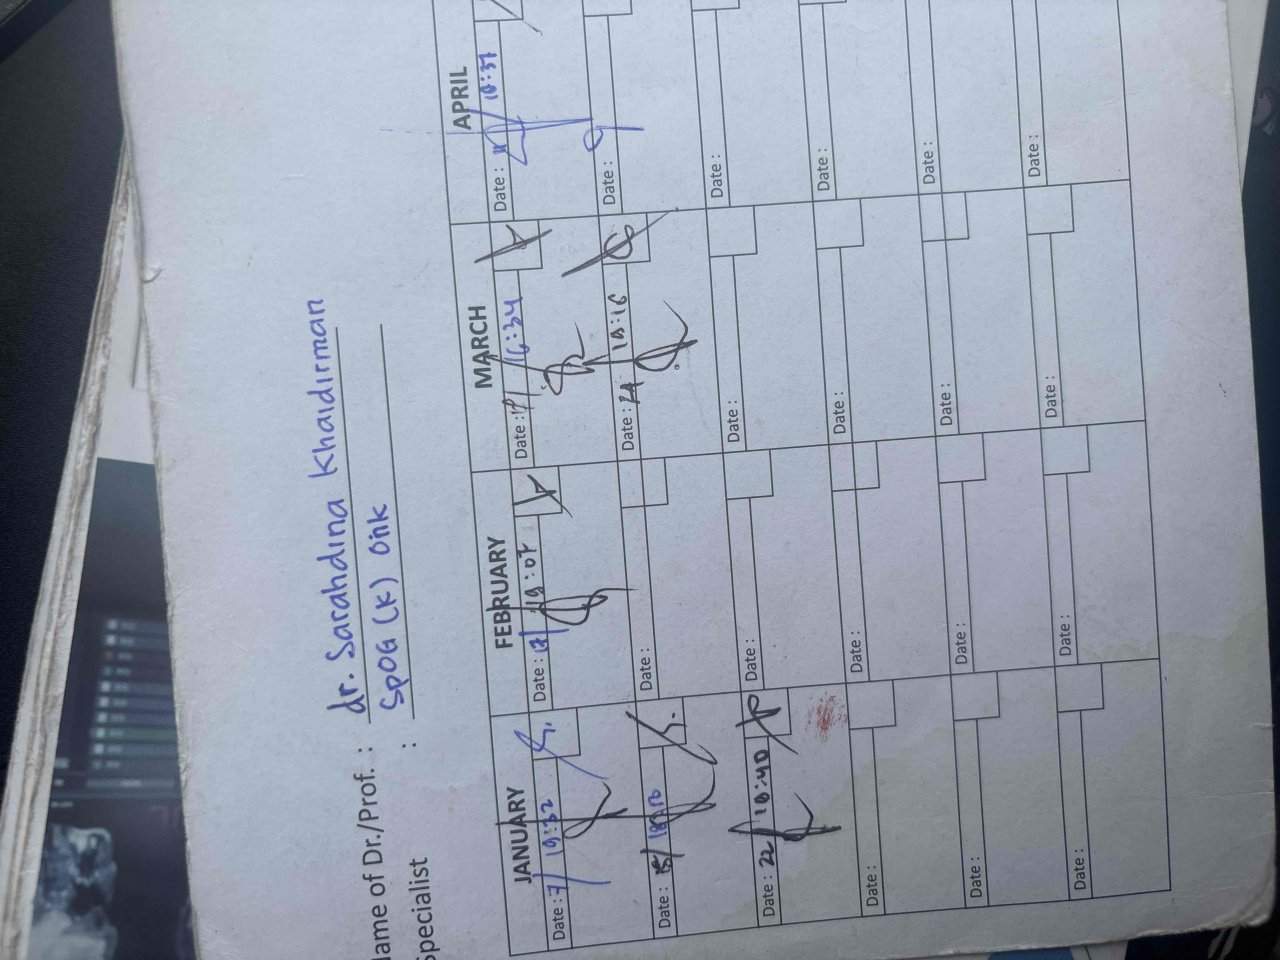 Name of Dr./Prof. : dr. Sarahdina Khaidirman
Specialist : SpOG (K) Oink
JANUARY FEBRUARY MARCH APRIL
Date : 7/ 19:32 Date : 19:07 Date : 16:34 Date :
Date : 15/ Date : Date : 24 19:16 Date :
Date : 22 Date : Date : Date :
Date : Date : Date : Date :
Date : Date : Date : Date :
Date : Date : Date : Date :